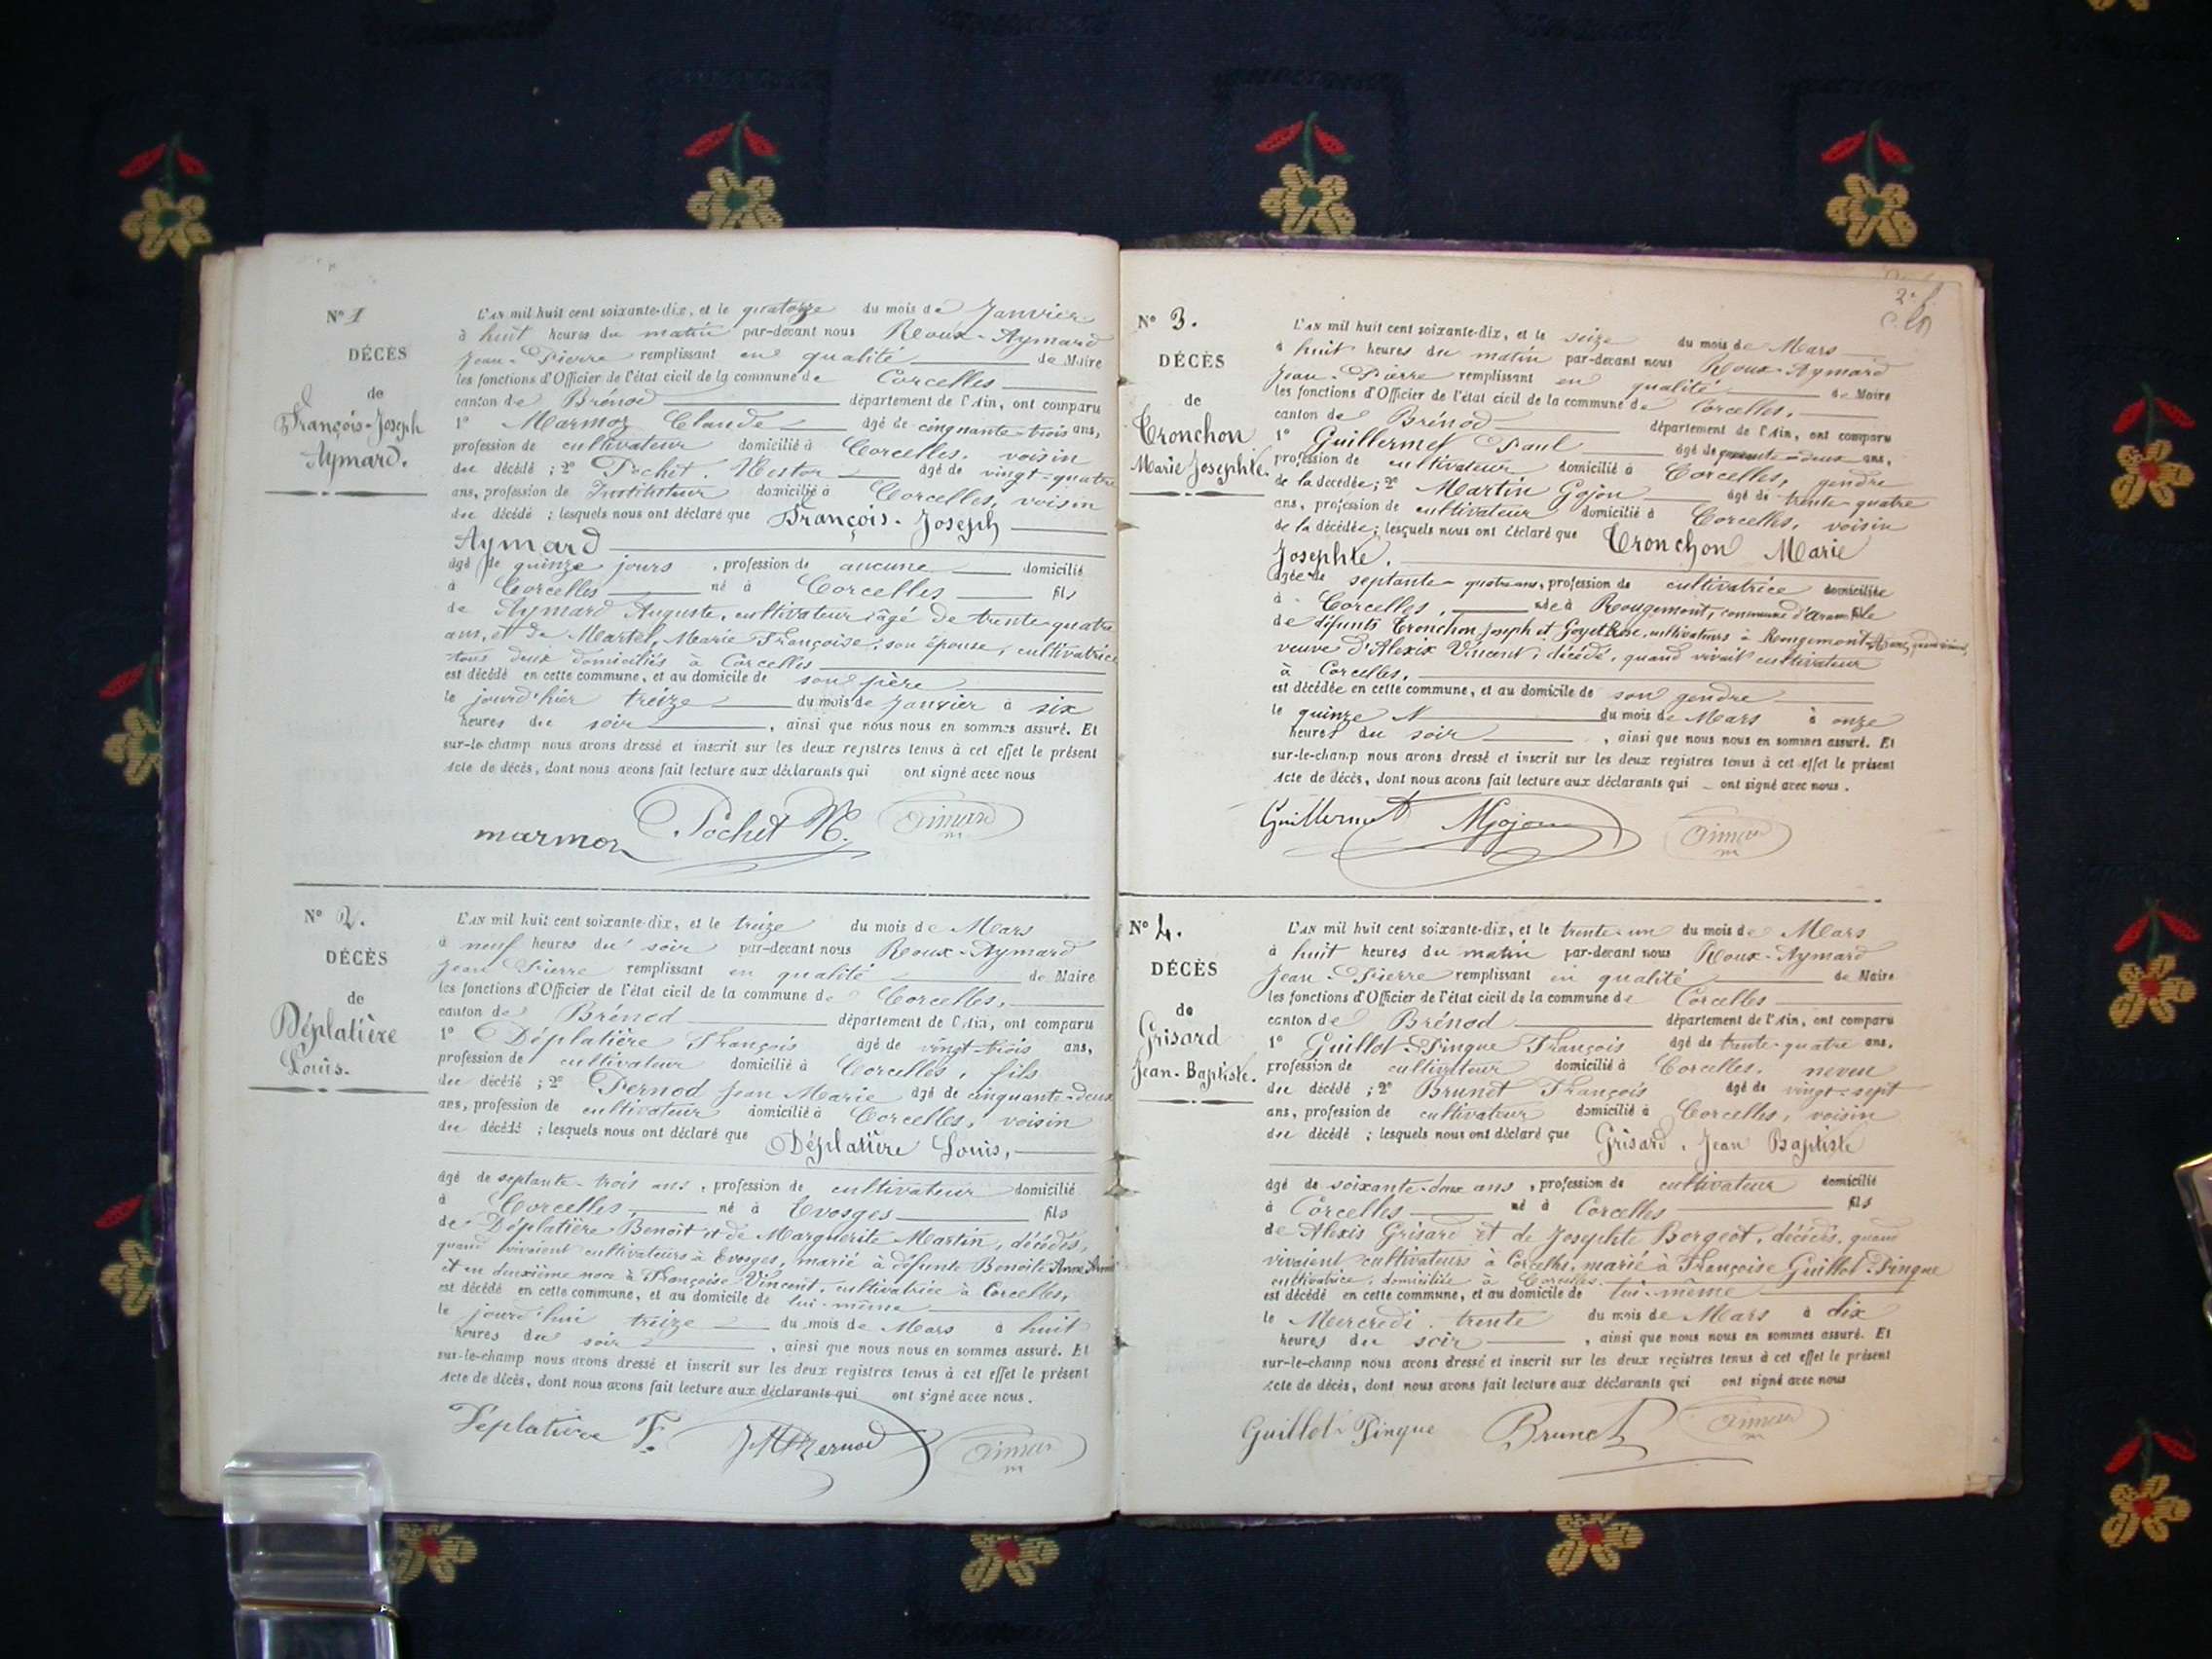 N° 1
DÉCÈS
de
François-Joseph
Aymard.
L'AN mil huit cent soixante-dix, et le quatorze du mois de Janvier
à huit heures du matin par-devant nous Roux-Aymard
Jean-Pierre remplissant en qualité de Maire
les fonctions d'Officier de l'état civil de la commune de Corcelles
canton de Brénod département de l'Ain, ont comparu
1° Marmoz Claude âgé de cinquante-trois ans,
profession de cultivateur domicilié à Corcelles, voisin
du décédé ; 2° Pochet, Nestor âgé de vingt-quatre
ans, profession de Instituteur domicilié à Corcelles, voisin
du décédé ; lesquels nous ont déclaré que François-Joseph
Aymard
âgé de quinze jours , profession de aucune domicilié
à Corcelles né à Corcelles fils
de Aymard Auguste, cultivateur âgé de trente-quatre
ans, et de Martel, Marie Françoise, son épouse, cultivatrice
tous deux domiciliés à Corcelles
est décédé en cette commune, et au domicile de son père
le jourd'hier treize du mois de Janvier à six
heures du soir , ainsi que nous nous en sommes assuré. Et
sur-le-champ nous avons dressé et inscrit sur les deux registres tenus à cet effet le présent
acte de décès, dont nous avons fait lecture aux déclarants qui ont signé avec nous
marmoz Pochet N.
N° 2.
DÉCÈS
de
Déplatière
Louis.
L'AN mil huit cent soixante-dix, et le treize du mois de Mars
à neuf heures du soir par-devant nous Roux-Aymard
Jean Pierre remplissant en qualité de Maire
les fonctions d'Officier de l'état civil de la commune de Corcelles,
canton de Brénod département de l'Ain, ont comparu
1° Déplatière François âgé de vingt-trois ans,
profession de cultivateur domicilié à Corcelles, fils
du décédé ; 2° Pernod Jean Marie âgé de cinquante-deux
ans, profession de cultivateur domicilié à Corcelles, voisin
du décédé ; lesquels nous ont déclaré que Déplatière Louis,
âgé de septante-trois ans , profession de cultivateur domicilié
à Corcelles, né à Evosges fils
de Déplatière Benoît et de Marguerite Martin, décédés,
quand vivaient cultivateurs à Evosges, marié à défunte Benoite Anne
et en deuxième noce à Françoise Vincent, cultivatrice à Corcelles,
est décédé en cette commune, et au domicile de lui-même
le jourd'hui treize du mois de Mars à huit
heures du soir , ainsi que nous nous en sommes assuré. Et
sur-le-champ nous avons dressé et inscrit sur les deux registres tenus à cet effet le présent
acte de décès, dont nous avons fait lecture aux déclarants qui ont signé avec nous.
Déplatière F. JM Pernod
2e f.
N° 3.
DÉCÈS
de
Tronchon
Marie Josephte.
L'AN mil huit cent soixante-dix, et le seize du mois de Mars
à huit heures du matin par-devant nous Roux-Aymard
Jean-Pierre remplissant en qualité de Maire
les fonctions d'Officier de l'état civil de la commune de Corcelles,
canton de Brénod département de l'Ain, ont comparu
1° Guillermet Paul âgé de ans,
profession de cultivateur domicilié à Corcelles, gendre
de la décédée ; 2° Martin Gojon âgé de trente-quatre
ans, profession de cultivateur domicilié à Corcelles, voisin
de la décédée ; lesquels nous ont déclaré que Tronchon Marie
Josephte.
âgée de septante-quatre ans, profession de cultivatrice domiciliée
à Corcelles, née à Rougemont, commune d'Aranc fille
de défunts Tronchon Joseph et Goyet Rose, cultivateurs à Rougemont
veuve d'Alexix Vincent, décédé, quand vivait cultivateur
à Corcelles,
est décédée en cette commune, et au domicile de son gendre
le quinze du mois de Mars à onze
heures du soir , ainsi que nous nous en sommes assuré. Et
sur-le-champ nous avons dressé et inscrit sur les deux registres tenus à cet effet le présent
acte de décès, dont nous avons fait lecture aux déclarants qui ont signé avec nous.
Guillermet MGojon
N° 4.
DÉCÈS
de
Grisard
Jean-Baptiste.
L'AN mil huit cent soixante-dix, et le trente-un du mois de Mars
à huit heures du matin par-devant nous Roux-Aymard
Jean-Pierre remplissant en qualité de Maire
les fonctions d'Officier de l'état civil de la commune de Corcelles
canton de Brénod département de l'Ain, ont comparu
1° Guillot-Pingue François âgé de trente-quatre ans,
profession de cultivateur domicilié à Corcelles, neveu
du décédé ; 2° Brunet François âgé de vingt-sept
ans, profession de cultivateur domicilié à Corcelles, voisin
du décédé ; lesquels nous ont déclaré que Grisard, Jean Baptiste
âgé de soixante-deux ans , profession de cultivateur domicilié
à Corcelles né à Corcelles fils
de Alexis Grisard et de Josephte Bergeot, décédés, quand
vivaient cultivateurs à Corcelles, marié à Françoise Guillot-Pingue
cultivatrice, domiciliée à Corcelles.
est décédé en cette commune, et au domicile de lui-même
le Mercredi trente du mois de Mars à dix
heures du soir , ainsi que nous nous en sommes assuré. Et
sur-le-champ nous avons dressé et inscrit sur les deux registres tenus à cet effet le présent
acte de décès, dont nous avons fait lecture aux déclarants qui ont signé avec nous
Guillot-Pingue Brunet